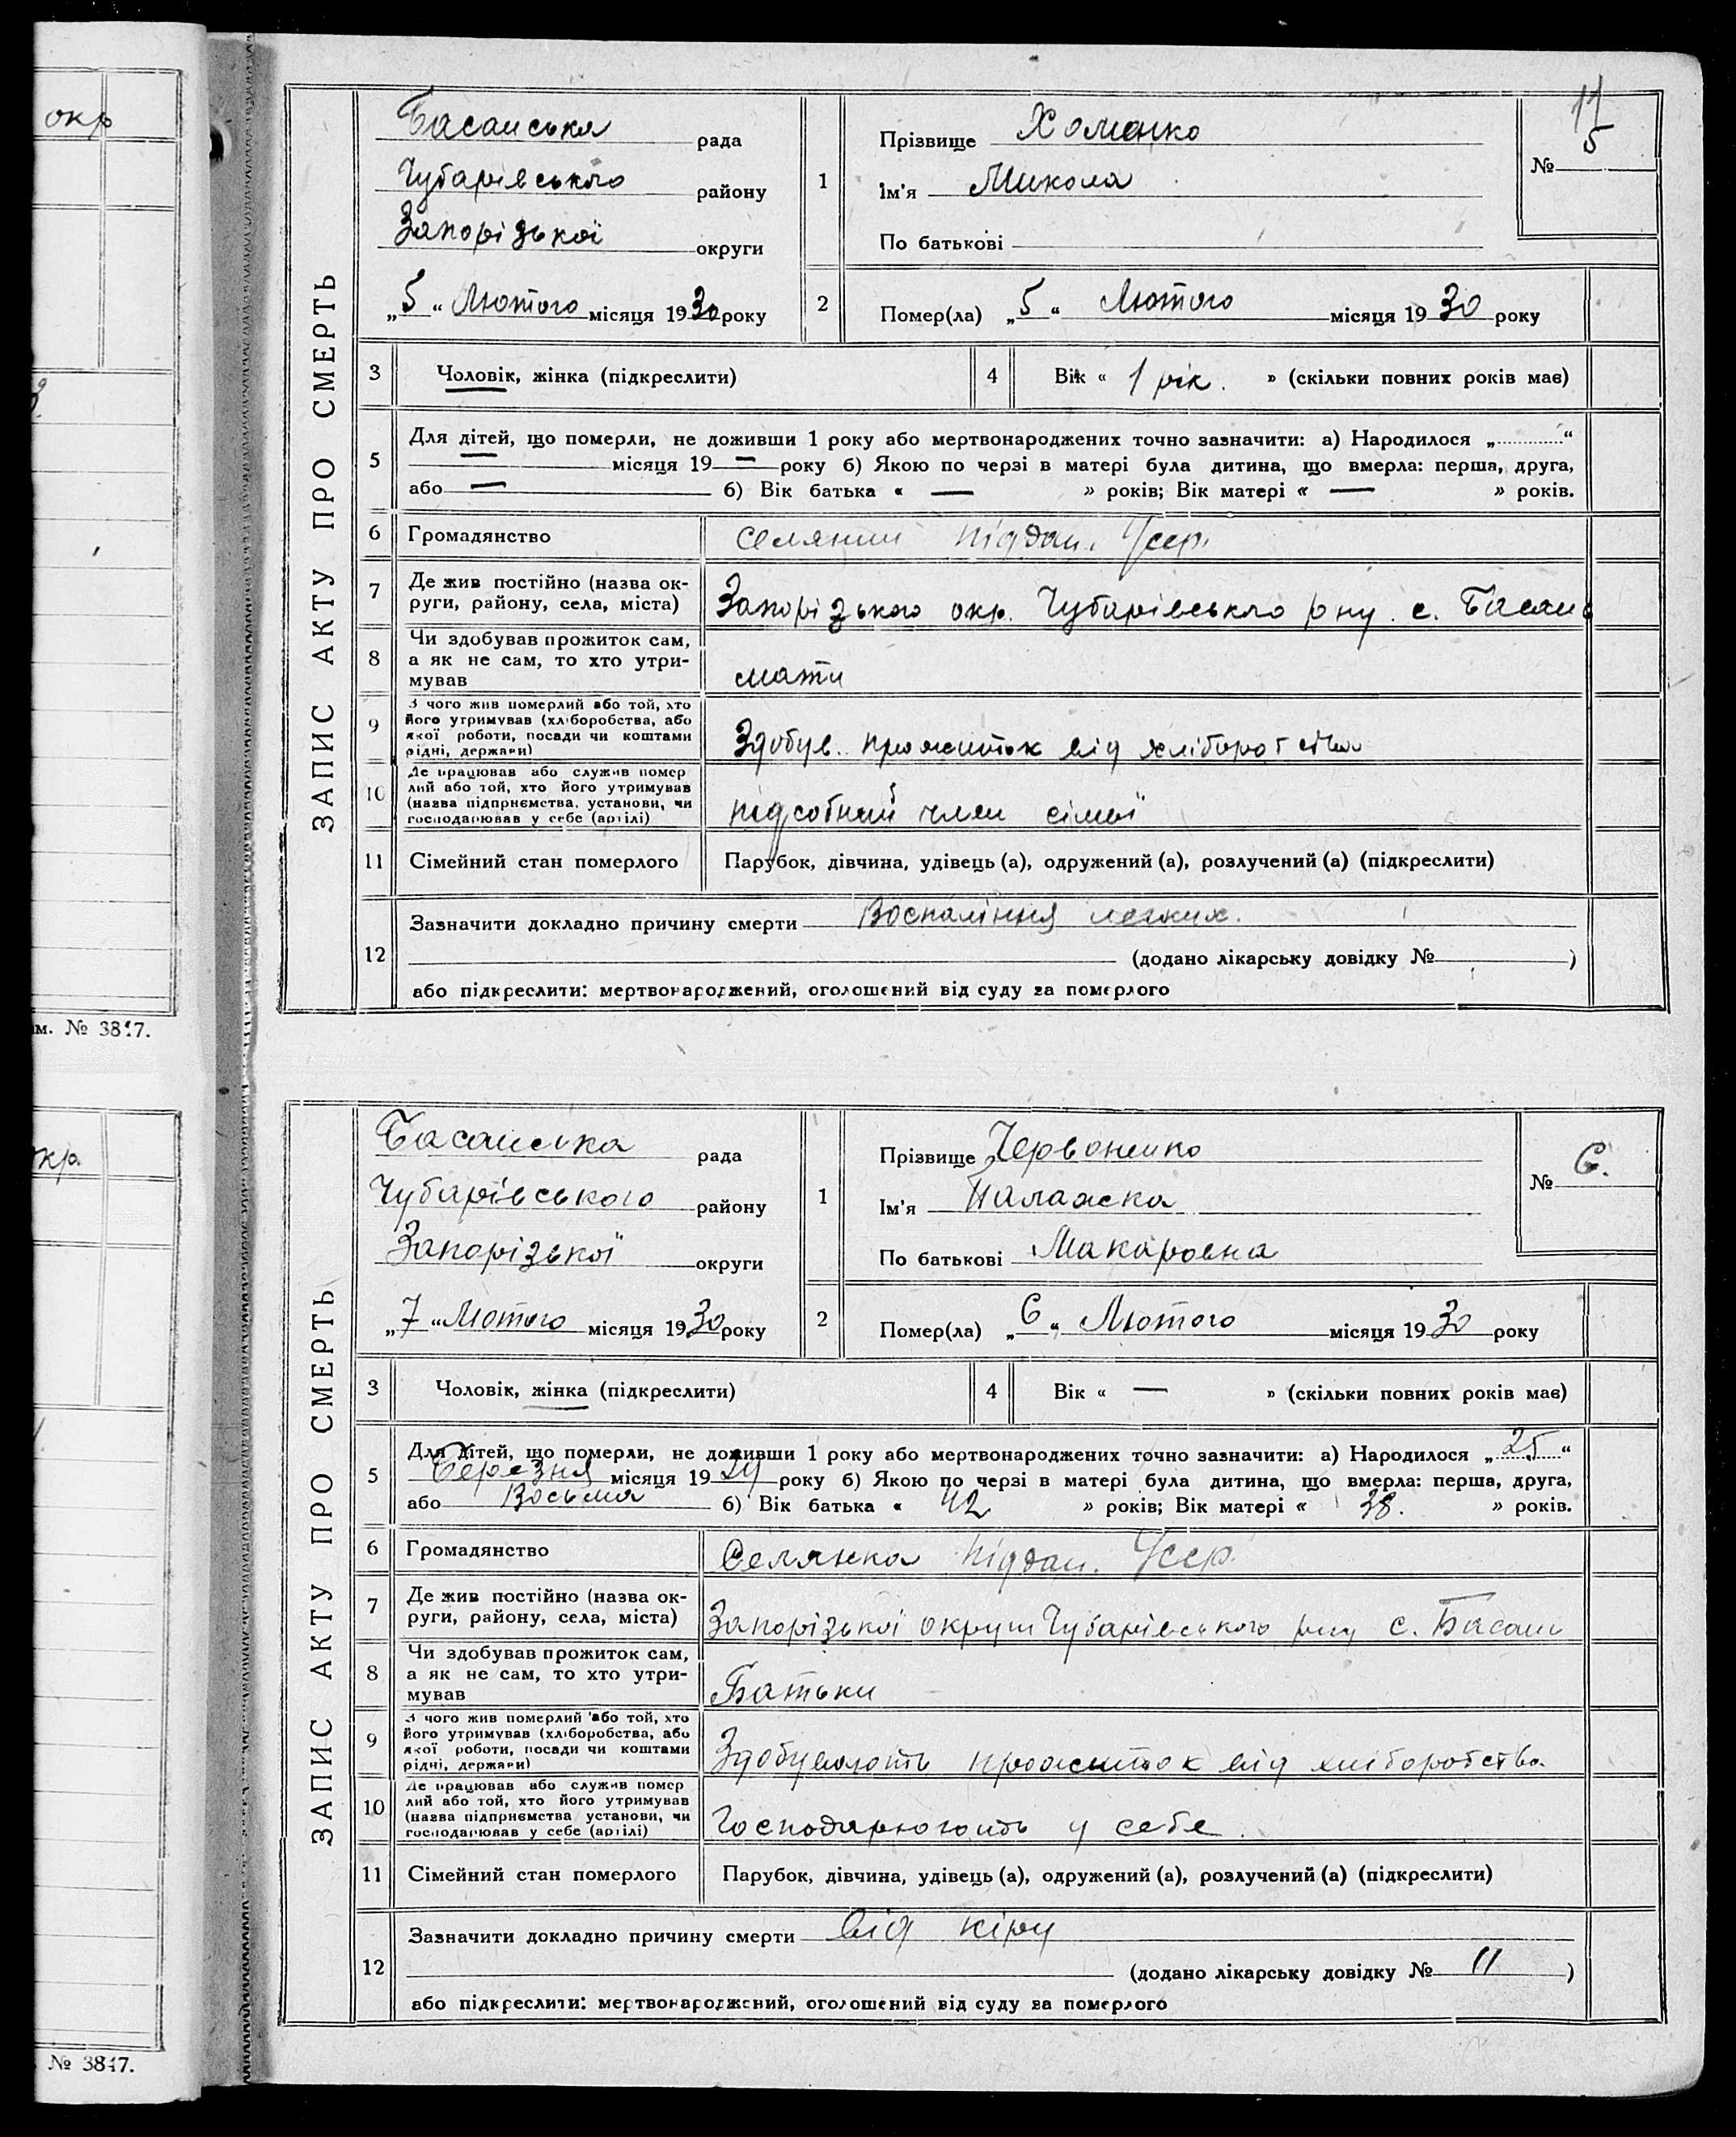 окр
м. № 3817.
кр.
№ 3847.
ЗАПИС АКТУ ПРО СМЕРТЬ
Басанська рада
Чубарівського району
Запорізької округи
„5“ Лютого місяця 1930 року
1
Прізвище Хоменко
Ім'я Микола
По батькові
11
№ 5
2
Помер(ла) „5“ Лютого місяця 1930 року
3 Чоловік, жінка (підкреслити)
4 Вік « 1 рік. » (скільки повних років має)
5
Для дітей, що померли, не доживши 1 року або мертвонароджених точно зазначити: а) Народилося „............“
— місяця 19 — року б) Якою по черзі в матері була дитина, що вмерла: перша, друга,
або — б) Вік батька « — » років; Вік матері « — » років.
6 Громадянство селянин підан. Усср.
7 Де жив постійно (назва ок-
руги, району, села, міста) Запорізького окр. Чубарівського р ну. с. Басань
8 Чи здобував прожиток сам,
а як не сам, то хто утри-
мував мати
9 З чого жив померлий або той, хто
його утримував (хліборобства, або
якої роботи, посади чи коштами
рідні, держави) Здобув. прожиток від хліборобства
10 Де працював або служив помер
лий або той, хто його утримував
(назва підприємства, установи, чи
господарював у себе (артілі) підсобний член сімьї
11 Сімейний стан померлого Парубок, дівчина, удівець (а), одружений (а), розлучений (а) (підкреслити)
12
Зазначити докладно причину смерти Воспаління легких.
(додано лікарську довідку № )
або підкреслити: мертвонароджений, оголошений від суду за померлого
ЗАПИС АКТУ ПРО СМЕРТЬ
Басанська рада
Чубарівського району
Запорізької округи
„7“ Лютого місяця 1930 року
1
Прізвище Червоненко
Ім'я Палажка
По батькові Макаровна
№ 6.
2
Помер(ла) „6“ Лютого місяця 1930 року
3 Чоловік, жінка (підкреслити)
4 Вік « — » (скільки повних років має)
5
Для дітей, що померли, не доживши 1 року або мертвонароджених точно зазначити: а) Народилося „25“
Березня місяця 1929 року б) Якою по черзі в матері була дитина, що вмерла: перша, друга,
або Восьма б) Вік батька « 42 » років; Вік матері « 38. » років.
6 Громадянство Селянка підан. Усср.
7 Де жив постійно (назва ок-
руги, району, села, міста) Запорізької округи Чубарівського рну с. Басань
8 Чи здобував прожиток сам,
а як не сам, то хто утри-
мував Батьки
9 З чого жив померлий або той, хто
його утримував (хліборобства, або
якої роботи, посади чи коштами
рідні, держави) Здобувають прожиток від хліборобства.
10 Де працював або служив помер
лий або той, хто його утримував
(назва підприємства установи, чи
господарював у себе (артілі) Господарюють у себе.
11 Сімейний стан померлого Парубок, дівчина, удівець (а), одружений (а), розлучений (а) (підкреслити)
12
Зазначити докладно причину смерти від кіру
(додано лікарську довідку № 11 )
або підкреслити: мертвонароджений, оголошений від суду за померлого